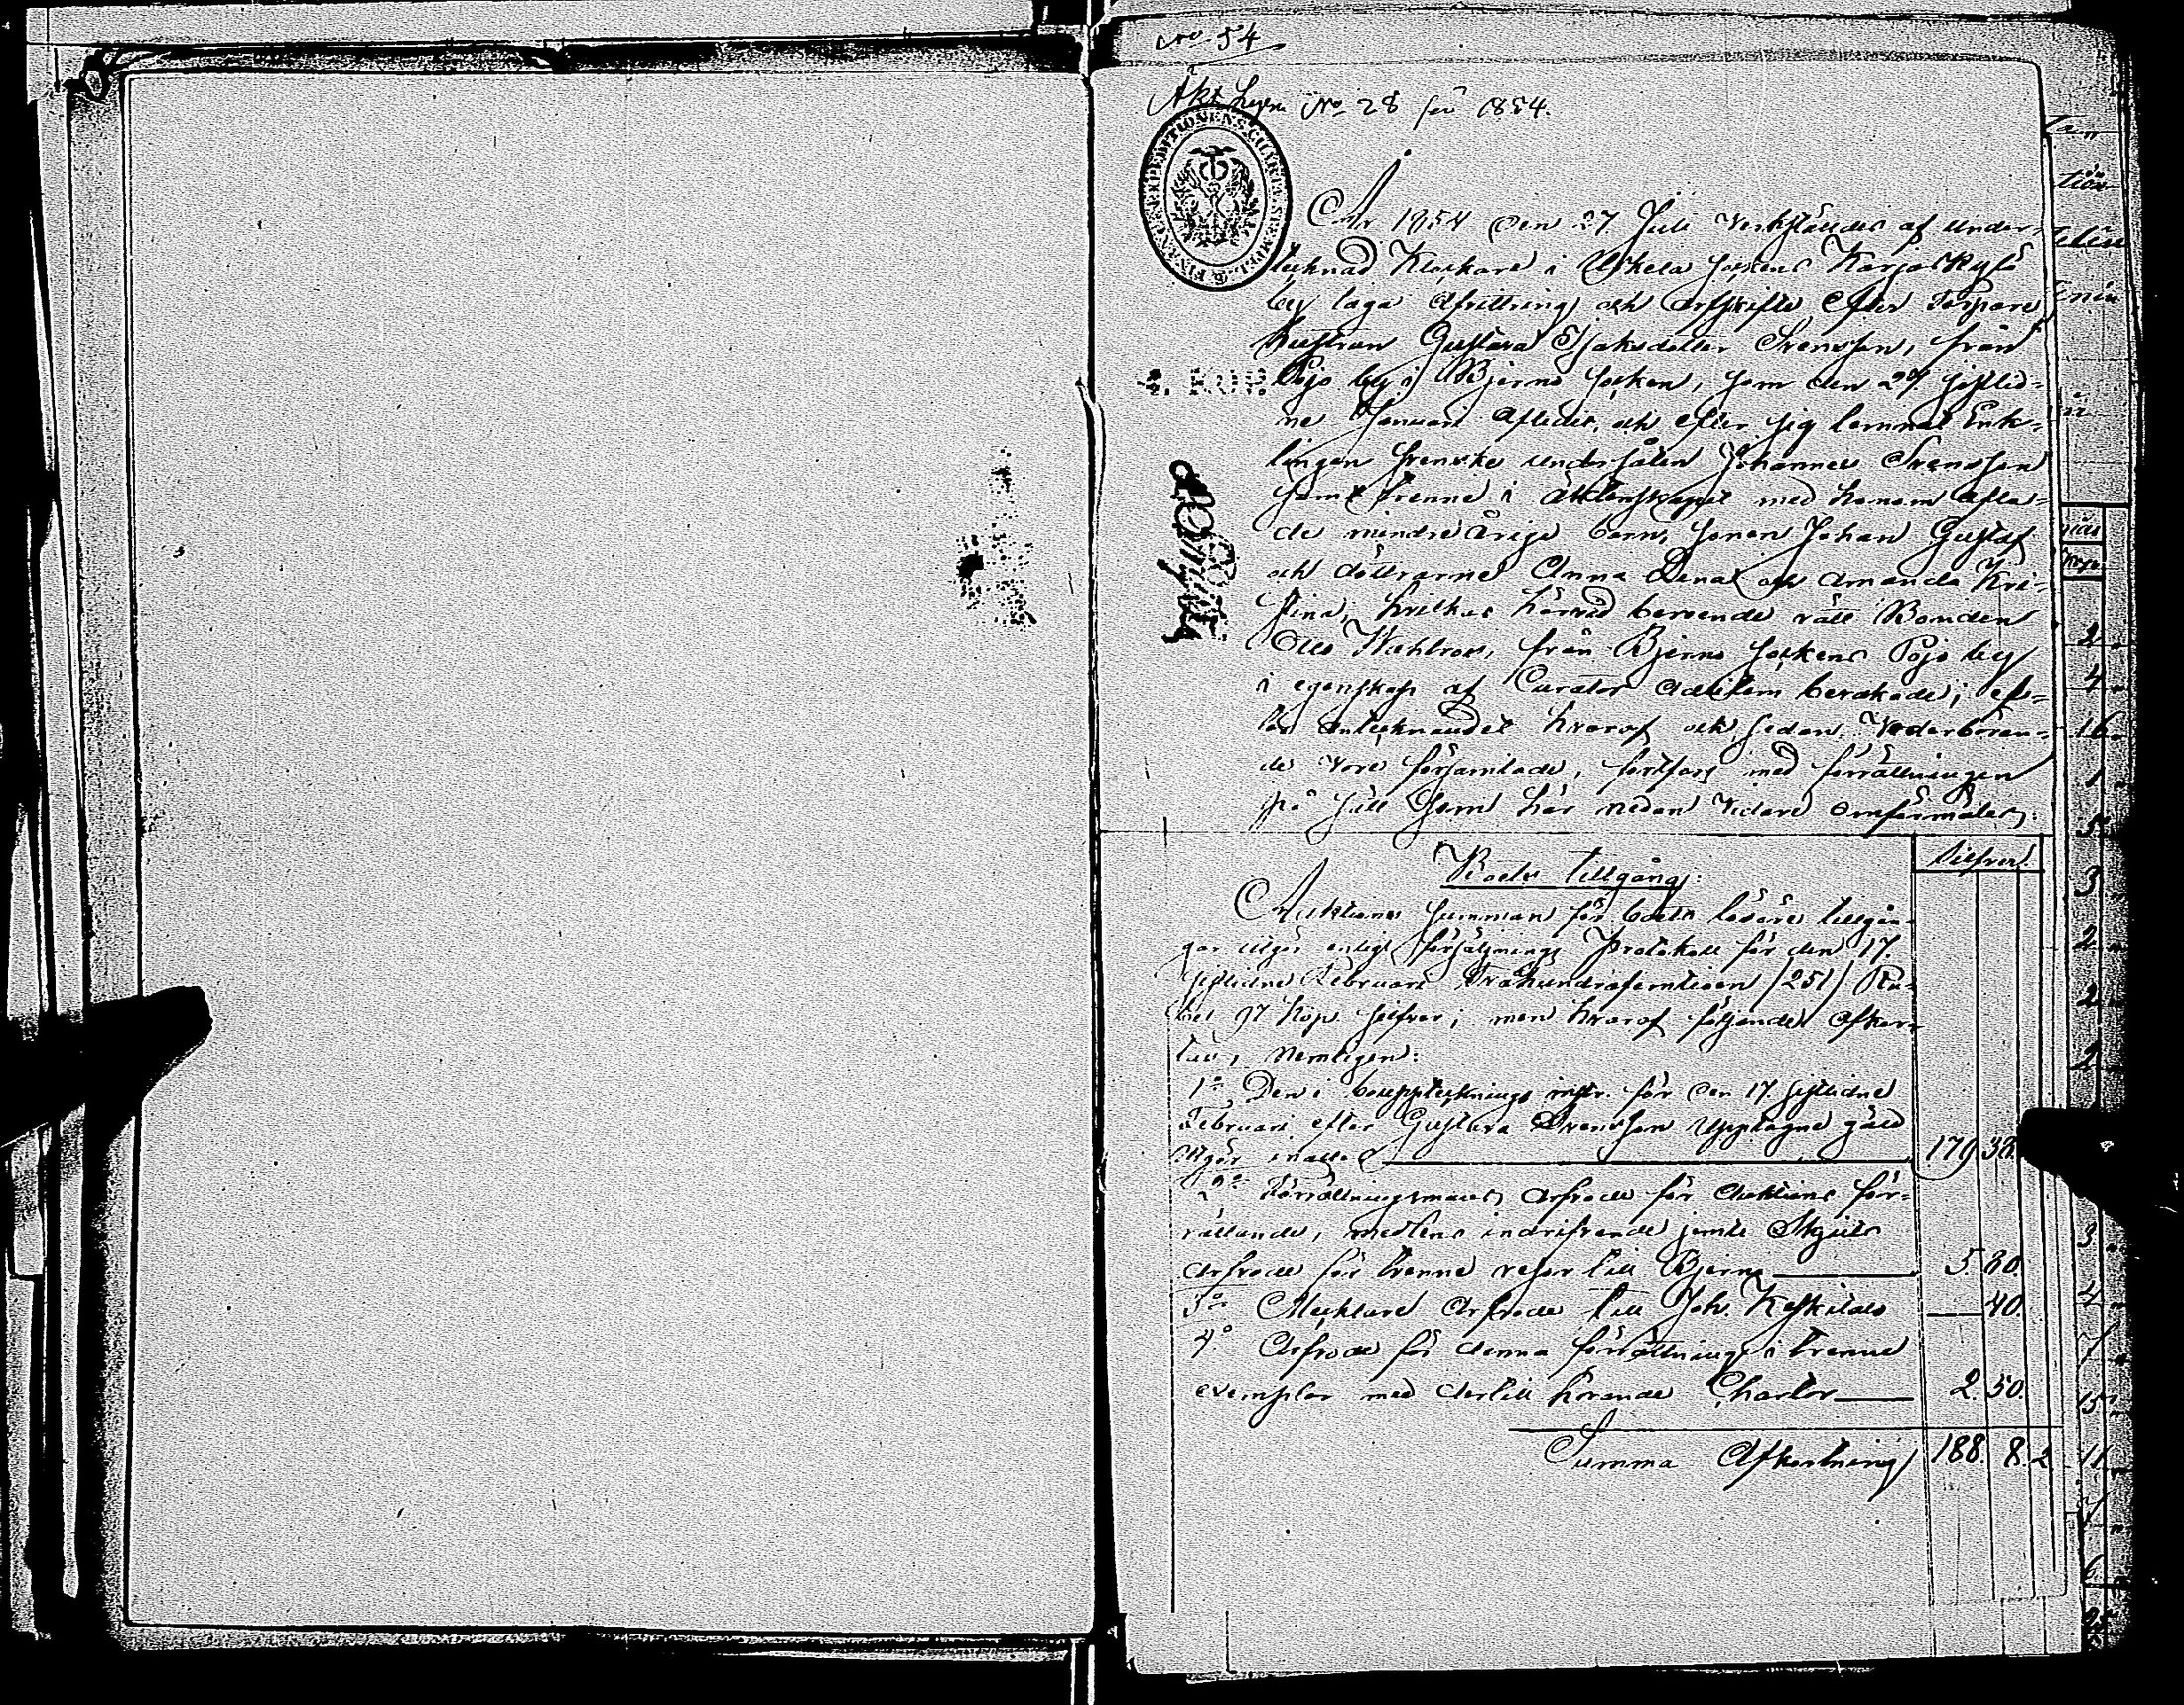 No 54
Akt No 28 för 1854.
År 1854 den 27 Juli verkställdes af under-
tecknad Klockare i Uskela sockens Karjaskylä
by laga afvittring och arfskifte efter Torpare
hustrun Gustava Isaksdotter Svensson, från
Pojo by i Bjerno socken, som den 27 sistlid-
ne Januari aflidit, och efter sig lemnat Enk-
lingen svenske undersåten Johannes Svensson
samt trenne i äktenskapet med honom afla-
de mindreårige barn, sonen Johan Gustaf
och döttrarne Anna Lena och Amanda Kri-
stina, hvilkas härvid beroende rätt Bonden
Otto Wahlroos, från Bjerno sockens Pojo by
i egenskap af Curator ad litem bevakade; ef-
ter antecknandet hvaraf och sedan Vederböran-
de vore församlade, fortfors med förrättningen
på sätt som här nedan vidare omförmäles:
4. KOP.
Boets tillgång:
Silfver.
Auktions summan för boets lösöre tillgån-
gar utgör enligt försäljnings Protokoll för den 17.
sistlidne Februari Tvåhundrafemtioen /251/ Ru-
bel 97 Kop. silfver; men hvaraf följande afkor-
tas, nemligen:
1o Den i bouppteckningsinstr. för den 17. sistlidne
Februari efter Gustava Svensson upptagne gäld
utgör inalles 179. 38.
2o Förrättningsmannens arfvode för Auktions för-
rättande, medlens indrifvande jemte Skjuts
arfvode för trenne resor till Bjerno 5. 80.
3o Mäklare Arfvode till Joh. Keskitalo 40.
4o Arfvode för denna förrättning i trenne
exemplar med dertill hörande Chartor 2. 50.
Summa Afkortning 188. 8. 2